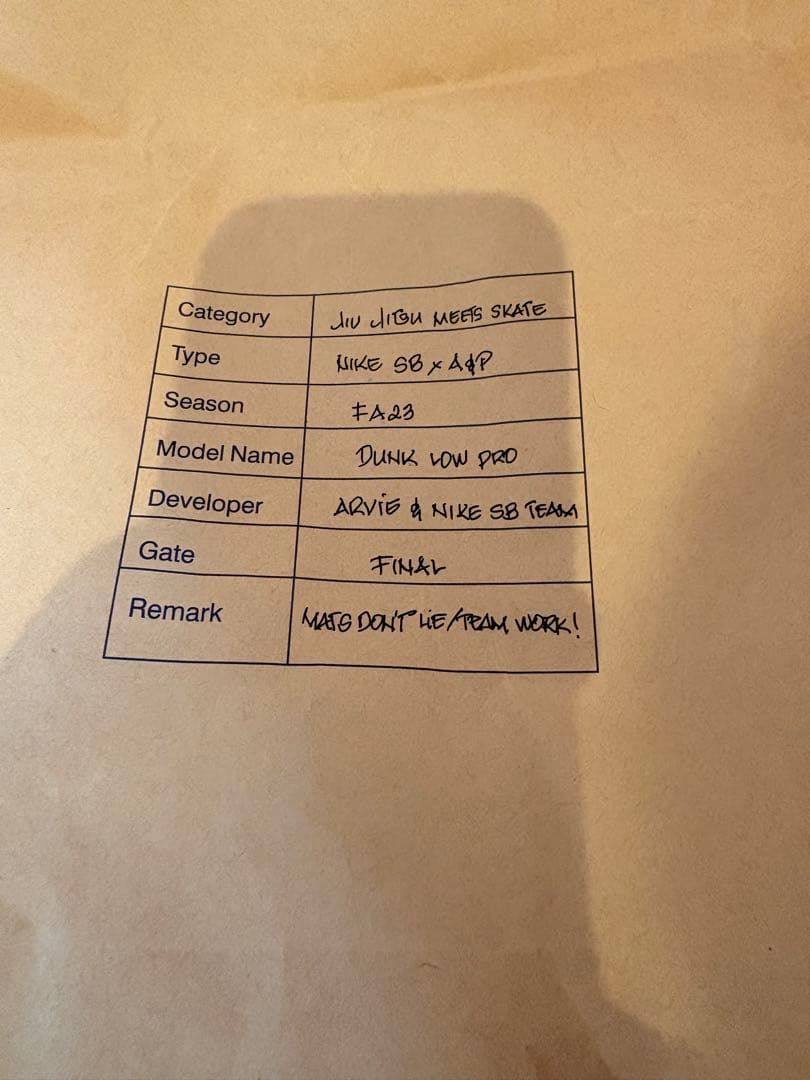 Category JIU JITSU MEETS SKATE
Type NIKE SB x A&P
Season FA23
Model Name DUNK LOW PRO
Developer ARVIE & NIKE SB TEAM
Gate FINAL
Remark MATS DON'T LIE/TEAM WORK!